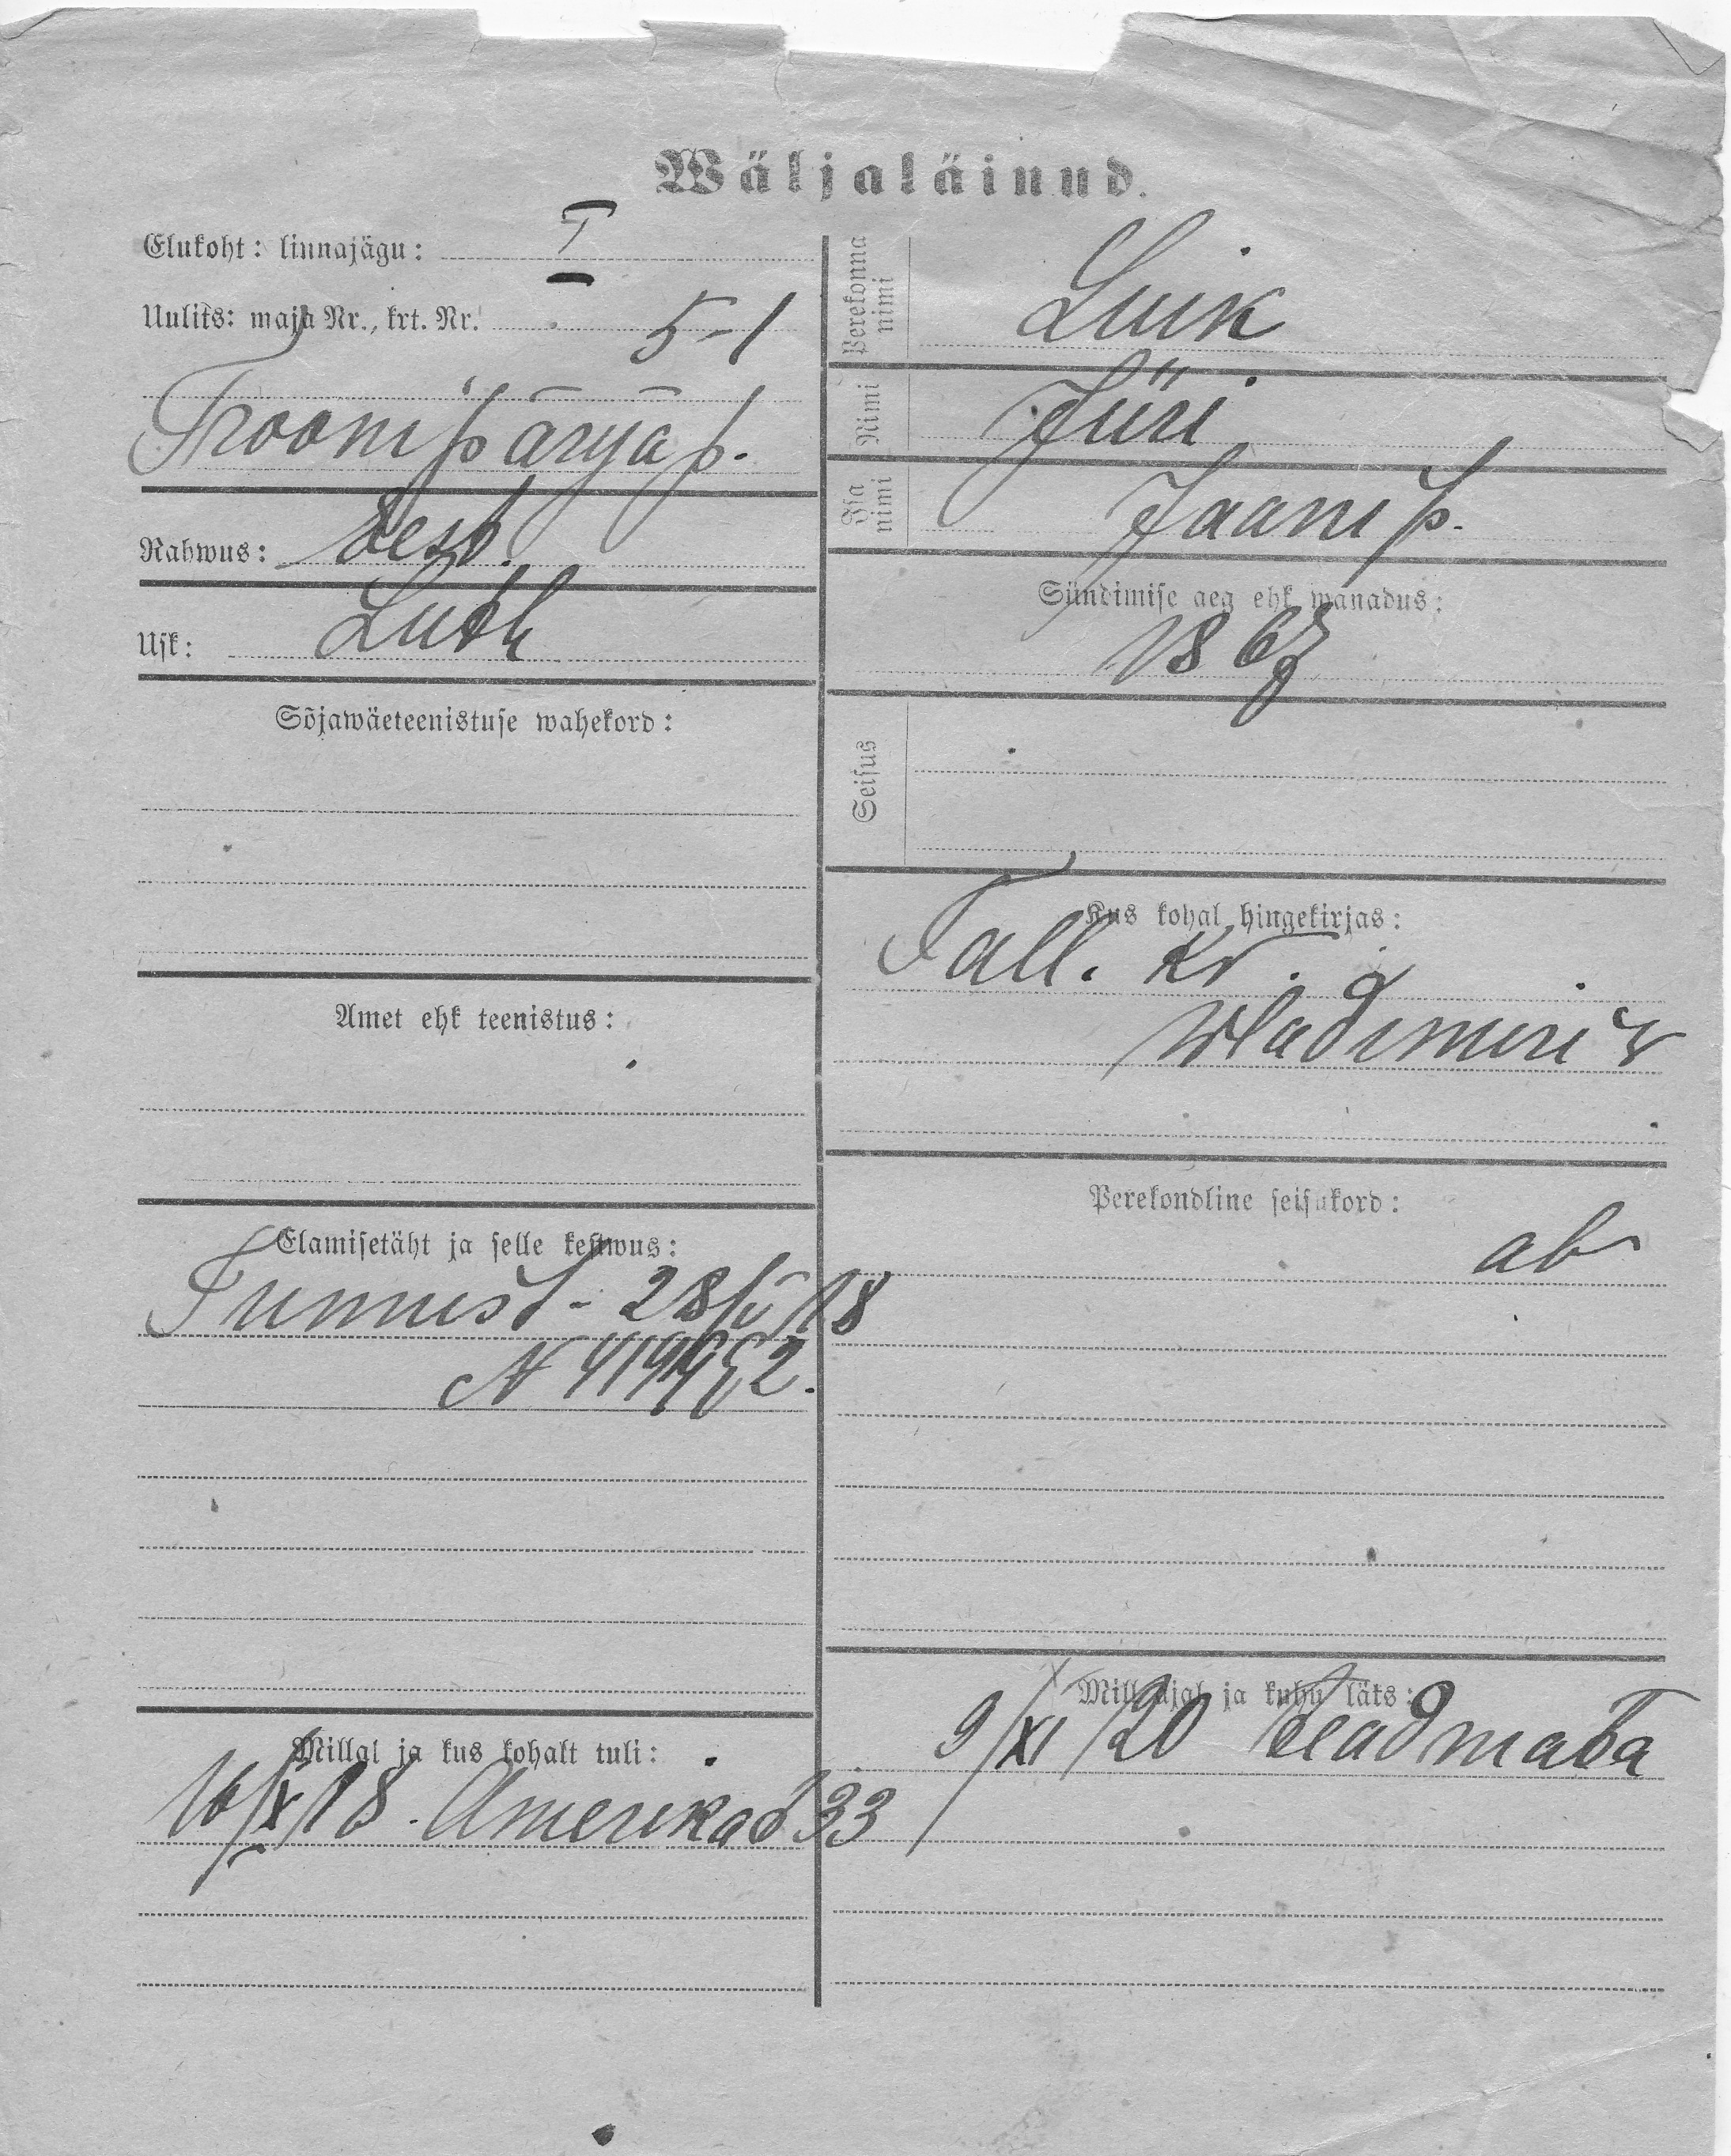 Wäljaläinud.
Elukoht: linnajägu: I
Uulits: maja Nr., krt. Nr. 5-1
Troonipärija p.
Rahwus: eest.
Usk: Luth
Sõjawäeteenistuse wahekord:
Amet ehk teenistus:
Elamisetäht ja selle kestwus:
Tunnist - 28/V 18
Millal ja kus kohalt tuli:
16/X 18. Amerikast 33
Perekonna nimi Luik
Nimi Jüri
Isa nimi Jaani p.
Sündimise aeg ehk wanadus:
1867
Seisus
Kus kohal hingekirjas:
Tall. Kr.
Wladimiri v
Perekondline seisukord:
ab
Millal ajal ja kuhu läks:
9/XI 20 teadmata